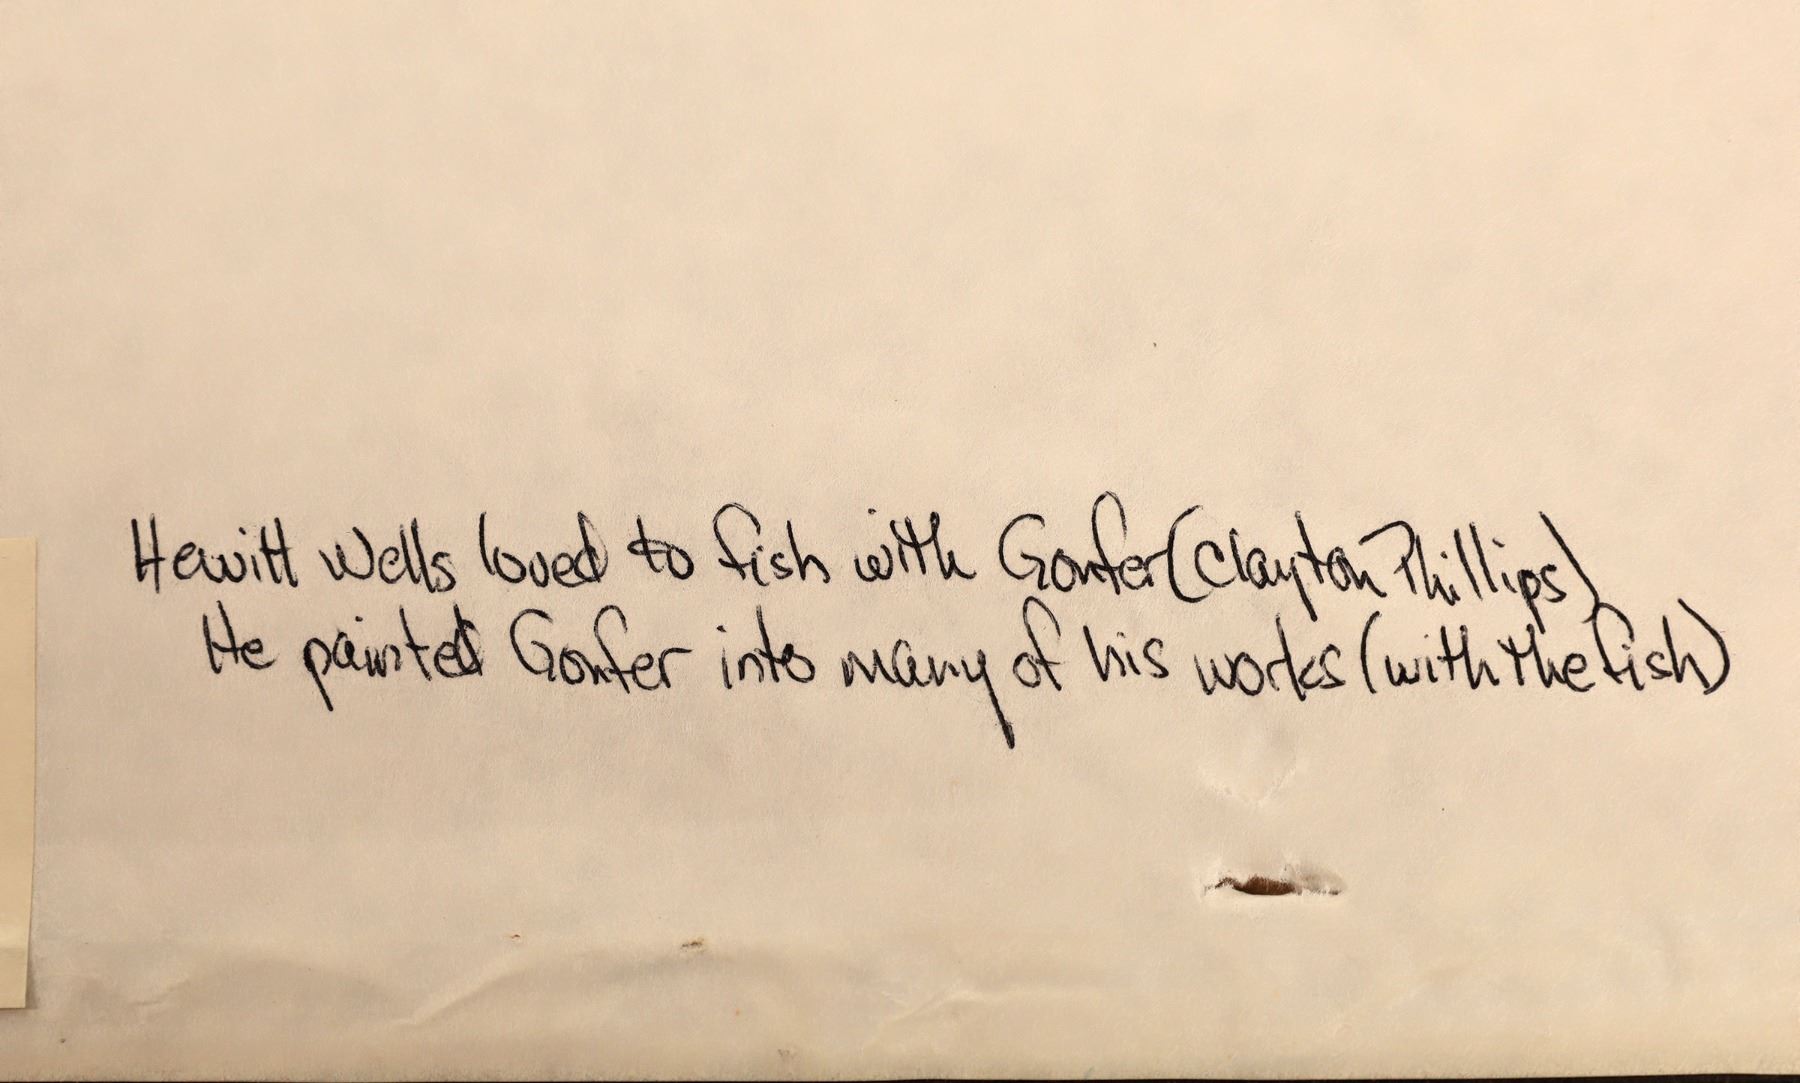 Hewitt Wells loved to fish with Gonfer (Clayton Phillips)
He painted Gonfer into many of his works (with the fish)